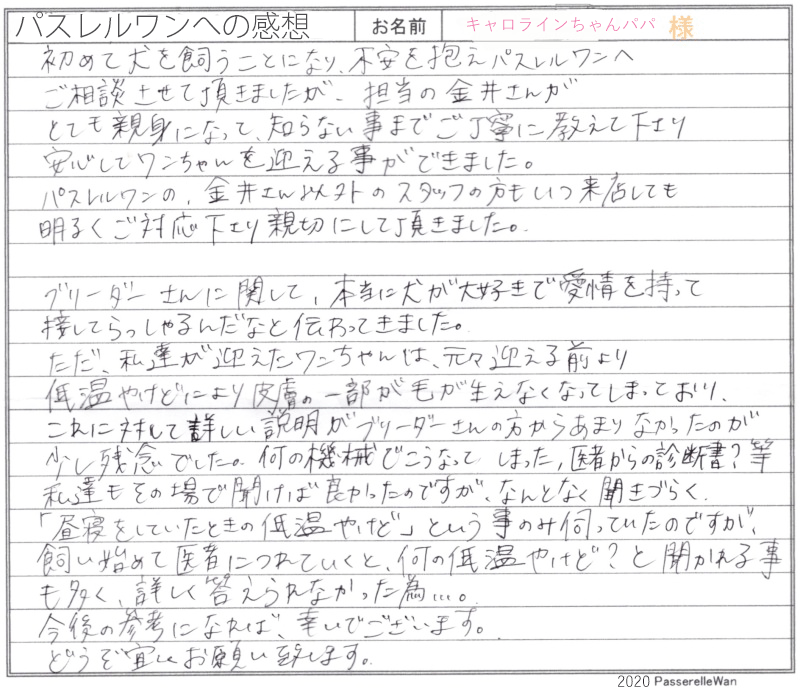 パスレルワンへの感想 お名前 キャロラインちゃんパパ 様
初めて犬を飼うことになり、不安を抱えパスレルワンへ
ご相談させて頂きましたが、担当の金井さんが
とても親身になって、知らない事までご丁寧に教えて下さり
安心してワンちゃんを迎える事ができました。
パスレルワンの、金井さん以外のスタッフの方もいつ来店しても
明るくご対応下さり親切にして頂きました。
ブリーダーさんに関して、本当に犬が大好きで愛情を持って
接してらっしゃるんだなと伝わってきました。
ただ、私達が迎えたワンちゃんは、元々迎える前より
低温やけどにより皮膚の一部が毛が生えなくなってしまっており、
これに対して詳しい説明がブリーダーさんの方からあまりなかったのが
少し残念でした。何の機械でこうなってしまった、医者からの診断書?等
私達もその場で聞けば良かったのですが、なんとなく聞きづらく、
「昼寝をしていたときの低温やけど」という事のみ伺っていたのですが、
飼い始めて医者につれていくと、何の低温やけど?と聞かれる事
も多く、詳しく答えられなかった為…。
今後の参考になれば、幸いでございます。
どうぞ宜しくお願い致します。
2020 PasserelleWan